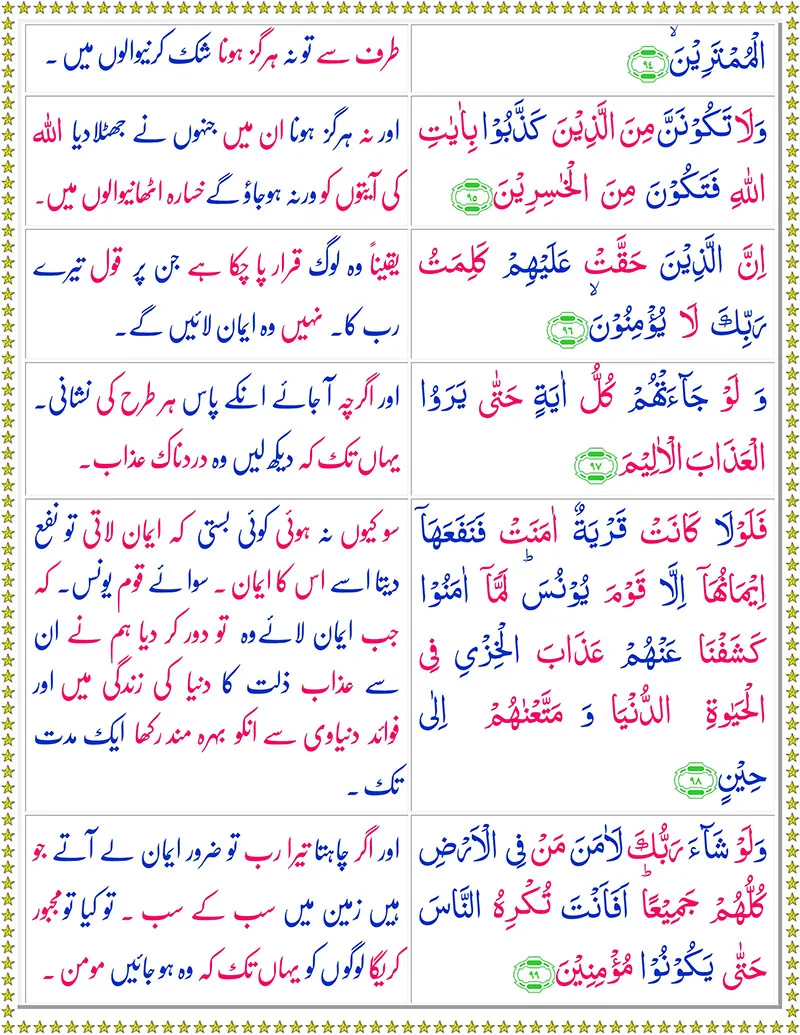 الۡمُمۡتَرِیۡنَ ۙ﴿۹۴﴾
طرف سے تو نہ ہرگز ہونا شک کرنیوالوں میں ۔
وَلَا تَکُوۡنَنَّ مِنَ الَّذِیۡنَ کَذَّبُوۡا بِاٰیٰتِ
اللّٰہِ فَتَکُوۡنَ مِنَ الۡخٰسِرِیۡنَ ﴿۹۵﴾
اور نہ ہرگز ہونا ان میں جنہوں نے جھٹلادیا اللہ
کی آیتوں کو ورنہ ہوجاؤ گے خسارہ اٹھانیوالوں میں۔
اِنَّ الَّذِیۡنَ حَقَّتۡ عَلَیۡہِمۡ کَلِمَتُ
رَبِّکَ لَا یُؤۡمِنُوۡنَ ۙ﴿۹۶﴾
یقیناً وہ لوگ قرار پا چکا ہے جن پر قول تیرے
رب کا۔ نہیں وہ ایمان لائیں گے۔
وَ لَوۡ جَآءَتۡہُمۡ کُلُّ اٰیَۃٍ حَتّٰی یَرَوُا
الۡعَذَابَ الۡاَلِیۡمَ ﴿۹۷﴾
اور اگرچہ آ جائے انکے پاس ہر طرح کی نشانی۔
یہاں تک کہ دیکھ لیں وہ دردناک عذاب۔
فَلَوۡلَا کَانَتۡ قَرۡیَۃٌ اٰمَنَتۡ فَنَفَعَہَاۤ
اِیۡمَانُہَاۤ اِلَّا قَوۡمَ یُوۡنُسَ ؕ لَمَّاۤ اٰمَنُوۡا
کَشَفۡنَا عَنۡہُمۡ عَذَابَ الۡخِزۡیِ فِی
الۡحَیٰوۃِ الدُّنۡیَا وَ مَتَّعۡنٰہُمۡ اِلٰی
حِیۡنٍ ﴿۹۸﴾
سو کیوں نہ ہوئی کوئی بستی کہ ایمان لاتی تو نفع
دیتا اسے اس کا ایمان ۔ سوائے قوم یونس۔ کہ
جب ایمان لائے وہ تو دور کر دیا ہم نے ان
سے عذاب ذلت کا دنیا کی زندگی میں اور
فوائد دنیاوی سے انکو بہرہ مند رکھا ایک مدت
تک ۔
وَلَوۡ شَآءَ رَبُّکَ لَاٰمَنَ مَنۡ فِی الۡاَرۡضِ
کُلُّہُمۡ جَمِیۡعًا ؕ اَفَاَنۡتَ تُکۡرِہُ النَّاسَ
حَتّٰی یَکُوۡنُوۡا مُؤۡمِنِیۡنَ ﴿۹۹﴾
اور اگر چاہتا تیرا رب تو ضرور ایمان لے آتے جو
ہیں زمین میں سب کے سب ۔ تو کیا تو مجبور
کریگا لوگوں کو یہاں تک کہ وہ ہو جائیں مومن ۔